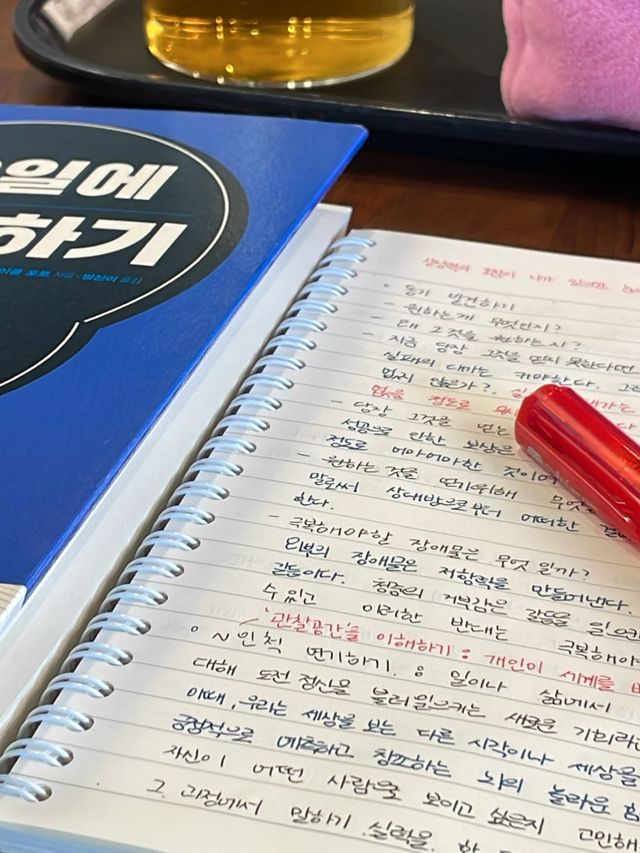 일에
하기
이클 포트 지음 · 방진이 옮김
동기 발견하기
- 원하는게 무엇인지?
- 왜 그것을 원하는지?
- 지금 당장 그것을 얻지 못한다면
실패의 대가는 커야한다.
없지 않은가?
없을 정도로
- 당장 그것을 얻는
성공으로 인한 보상은
정도로 어마어마한 것이어
- 원하는 것을 얻기위해 무엇
말로써 상대방으로부터 어떠한
한다.
- 극복해야할 장애물은 무엇 일까?
외부의 장애물은 저항력을 만들어낸다
갈등이다. 청중의 거부감은 갈등을 일으
수 있고 이러한 반대는 극복해야
'관찰공간'을 이해하기 : 개인이 세계를
○ ~인 척 연기하기. : 일이나 삶에서
대해 도전 정신을 불러 일으키는 새로운
이때, 우리는 세상을 보는 다른 시각이나 세상을
긍정적으로 예측하고 창조하는 뇌의 놀라운
자신이 어떤 사람으로 보이고 싶은지 고민해
그 과정에서 말하기 실력을